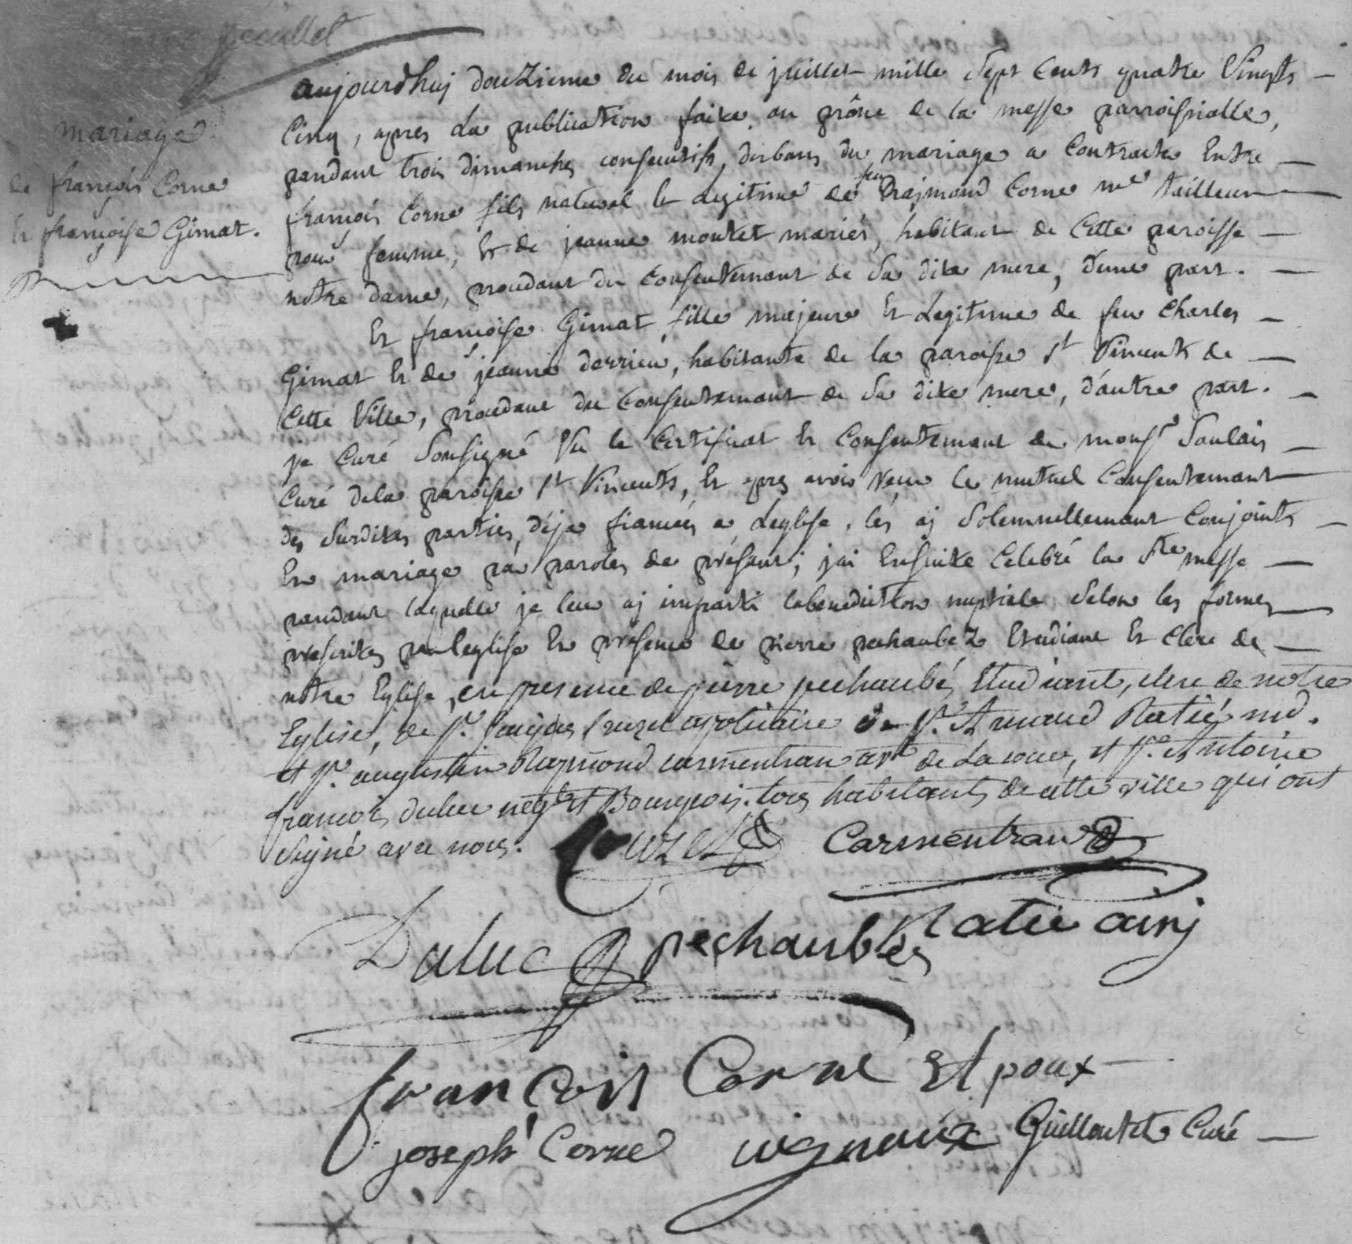 mariage
de françois Corne
Et françoise Gimat.
aujourdhuj douzieme du mois de juillet mille sept cents quatre vingts
Cinq, apres la publication faite au prône de la messe parroissialle,
pendant trois dimanches consecutifs, du mariage a Contracter Entre
françois Corne fils naturel et Legitime de feu Raymond Corne me tailleur
pour femme, Et de jeanne moutet mariés, habitant de Cette paroisse
notre dame, procedant du Consentement de Sa dite mere, d'une part.
Et françoise Gimat fille majeure Et Legitime de feu Charles
Gimat Et de jeanne derrieu, habitante de la paroisse st Vincents de
Cette Ville, procedant du Consentemant de Sa dite mere, d'autre part.
je Curé Soussigné Vu le Certificat Et Consentemant de monsr Soulais
Curé dela paroisse st Vincents, Et apres avoir reçu le mutuel Consentemant
des Susdites parties, déja fiancées a Leglise, les aj Solemnellemant Conjoints
En mariage par paroles de présent; jai Ensuite Celebré la Ste messe
pendant laquelle je leur aj imparti labenediction nuptiale Selon les formes
prescrites par leglise En présence de pierre pechaubez Etudiant Et Clerc de
notre Eglise, en presence de pierre pechaubés Etudiant, clerc de notre
Eglise, de sr. apoticaire de sr. Arnaud Ratié md.
et sr. augustin Raymond carmentran avt de Lacour, et sr. Antoine
françois duluc negt et Bourgeois. tous habitants de cette ville qui ont
signé avec nous.
Carmentran
Ratié ainj
Duluc pechaubés
françois Corne Et poux
joseph Corne vignaux Guilloutet Curé